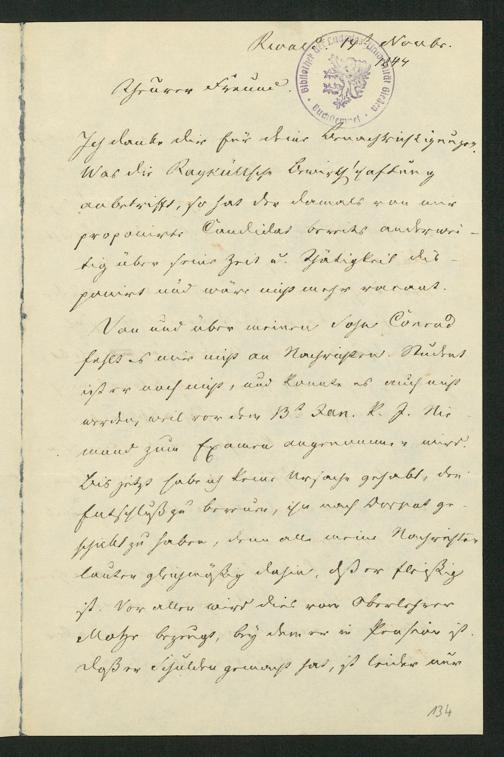 Reval d. 19t Novbr.
1844
Bibliothek der Ludwigs-Universität Giessen
Theurer Freund.
Ich danke dir für deine Benachrichtigungen.
Was die Rayküllsche Bewirthschaftung
anbetrifft, so hat der damals von mir
proponirte Candidat bereits anderwei-
tig über seine Zeit u. Thätigkeit dis-
ponirt und wäre nicht mehr vacant.
Von und über meinen Sohn Conrad
fehlt es mir nicht an Nachrichten. Student
ist er noch nicht, und konnte es auch nicht
werden, weil vor dem 13t Jan. k. J. Nie-
mand zum Examen angenommen wird.
Bis jetzt habe ich keine Ursache gehabt, den
Entschluß zu bereuen, ihn nach Dorpat ge-
schickt zu haben, denn alle meine Nachrichten
lauten gleichmäßig dahin, daß er fleißig
ist. Vor allen wird dies vom Oberlehrer
bezeugt, bey dem er in Pension ist.
Daß er Schulden gemacht hat, ist leider nur
134